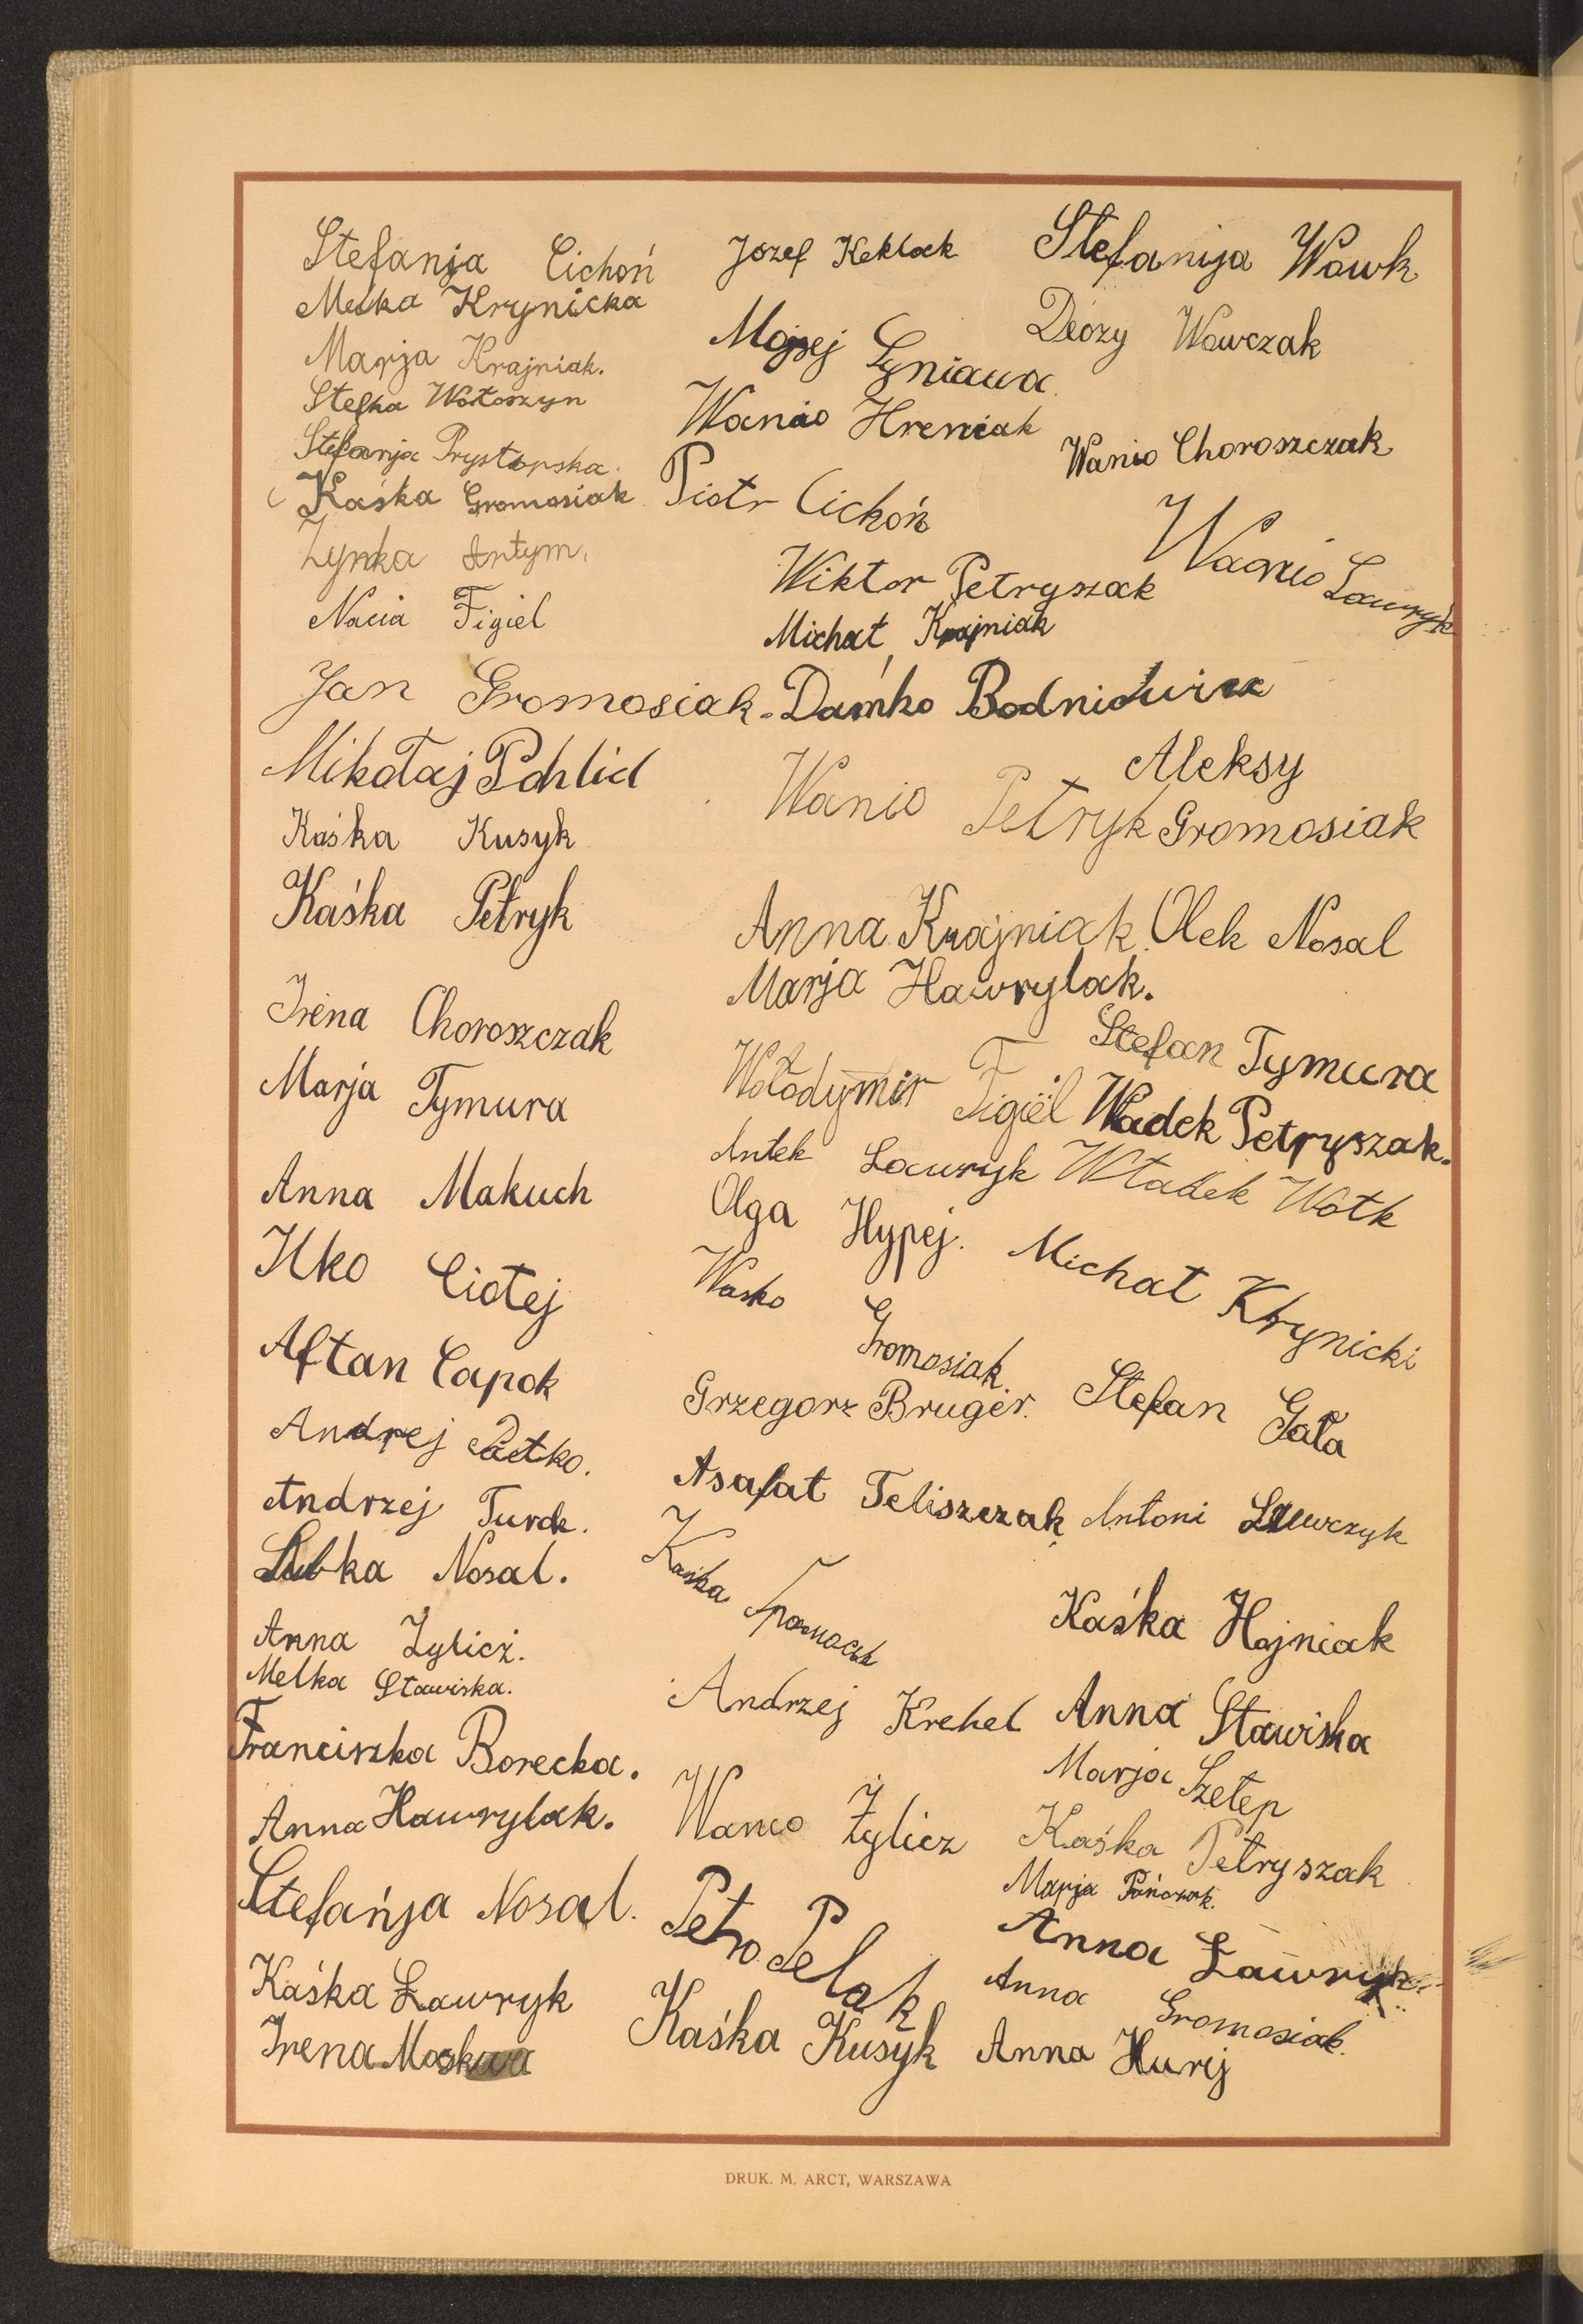 Stefanja Cichoń
Melka Krynicka
Marja Krajniak.
Stefka Wołoszyn
Stefanja Prystopska.
Kaśka Gromosiak
Zynka Antym.
Nacia Figiel
Jan Gromosiak.
Mikołaj Pohlid
Kaśka Kusyk
Kaśka Petryk
Irena Choroszczak
Marja Tymura
Anna Makuch
Ilko Ciołej
Aftan Capok
Andrej Patko.
Andrzej Turck.
Lubka Nosal.
Anna Żylicz.
Melka Stawiska.
Franciszka Borecka.
Anna Hawrylak.
Stefańja Nosal.
Kaśka Ławryk
Irena Moskwa
Józef Keklak
Mojsej Łyniawa
Wanio Hreniak
Piotr Cichoń
Wiktor Petryszak
Michał Krajniak
Dańko
Wanio Petryk
Anna Krajniak
Marja Hawrylak.
Wołodymir Figiel
Antek Ławryk
Olga Hypej.
Wasko Gromosiak.
Grzegorz Bruger.
Asafat Teliszczak
Kaśka
Andrzej Krehel
Wanio Żylicz
Petro Pelak
Kaśka Kusyk
Stefanija Wowk
Wawczak
Wanio Choroszczak
Wanio Ławryk
Aleksy
Gromosiak
Olek Nosal
Stefan Tymura
Władek Petryszak.
Władek Wołk
Michał Krynicki
Stefan Gała
Antoni Ławczyk
Kaśka Hojniak
Anna Stawiska
Marja Szełep
Kaśka Petryszak
Marja
Anna Ławryk
Anna Gromosiak.
Anna Hurij
DRUK. M. ARCT, WARSZAWA